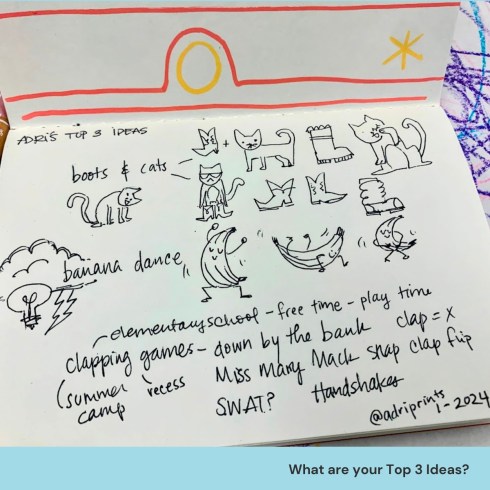 ADRI'S TOP 3 IDEAS
boots & cats
+
banana dance
elementary school - free time - play time
clapping games - down by the bank clap = x
(summer camp recess Miss Mary Mack snap clap flip
SWAT? Handshakes
@adriprints
1-2024
What are your Top 3 Ideas?